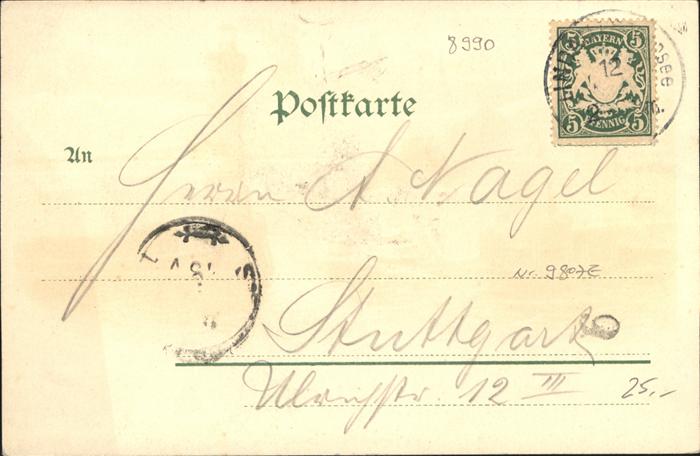 8990
5 BAYERN 5
12
5 PFENNIG 5
Postkarte
An
Herrn A. Nagel
Nr. 9807E
Stuttgart
Ulrichstr. 12 III
25,-